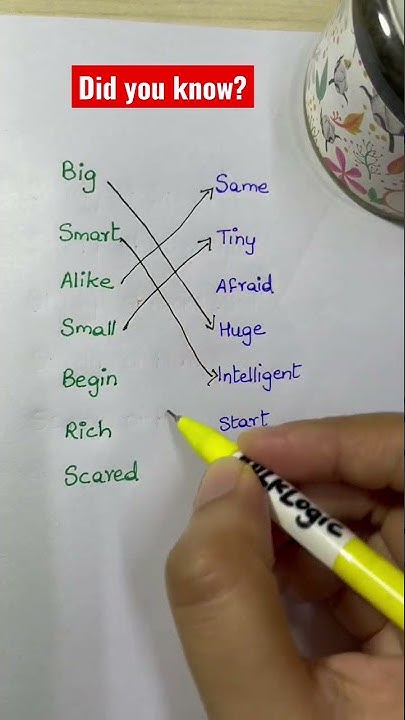 Did you know?
Big
Same
Smart
Tiny
Alike
Afraid
Small
Huge
Begin
Intelligent
Rich
Start
Scared